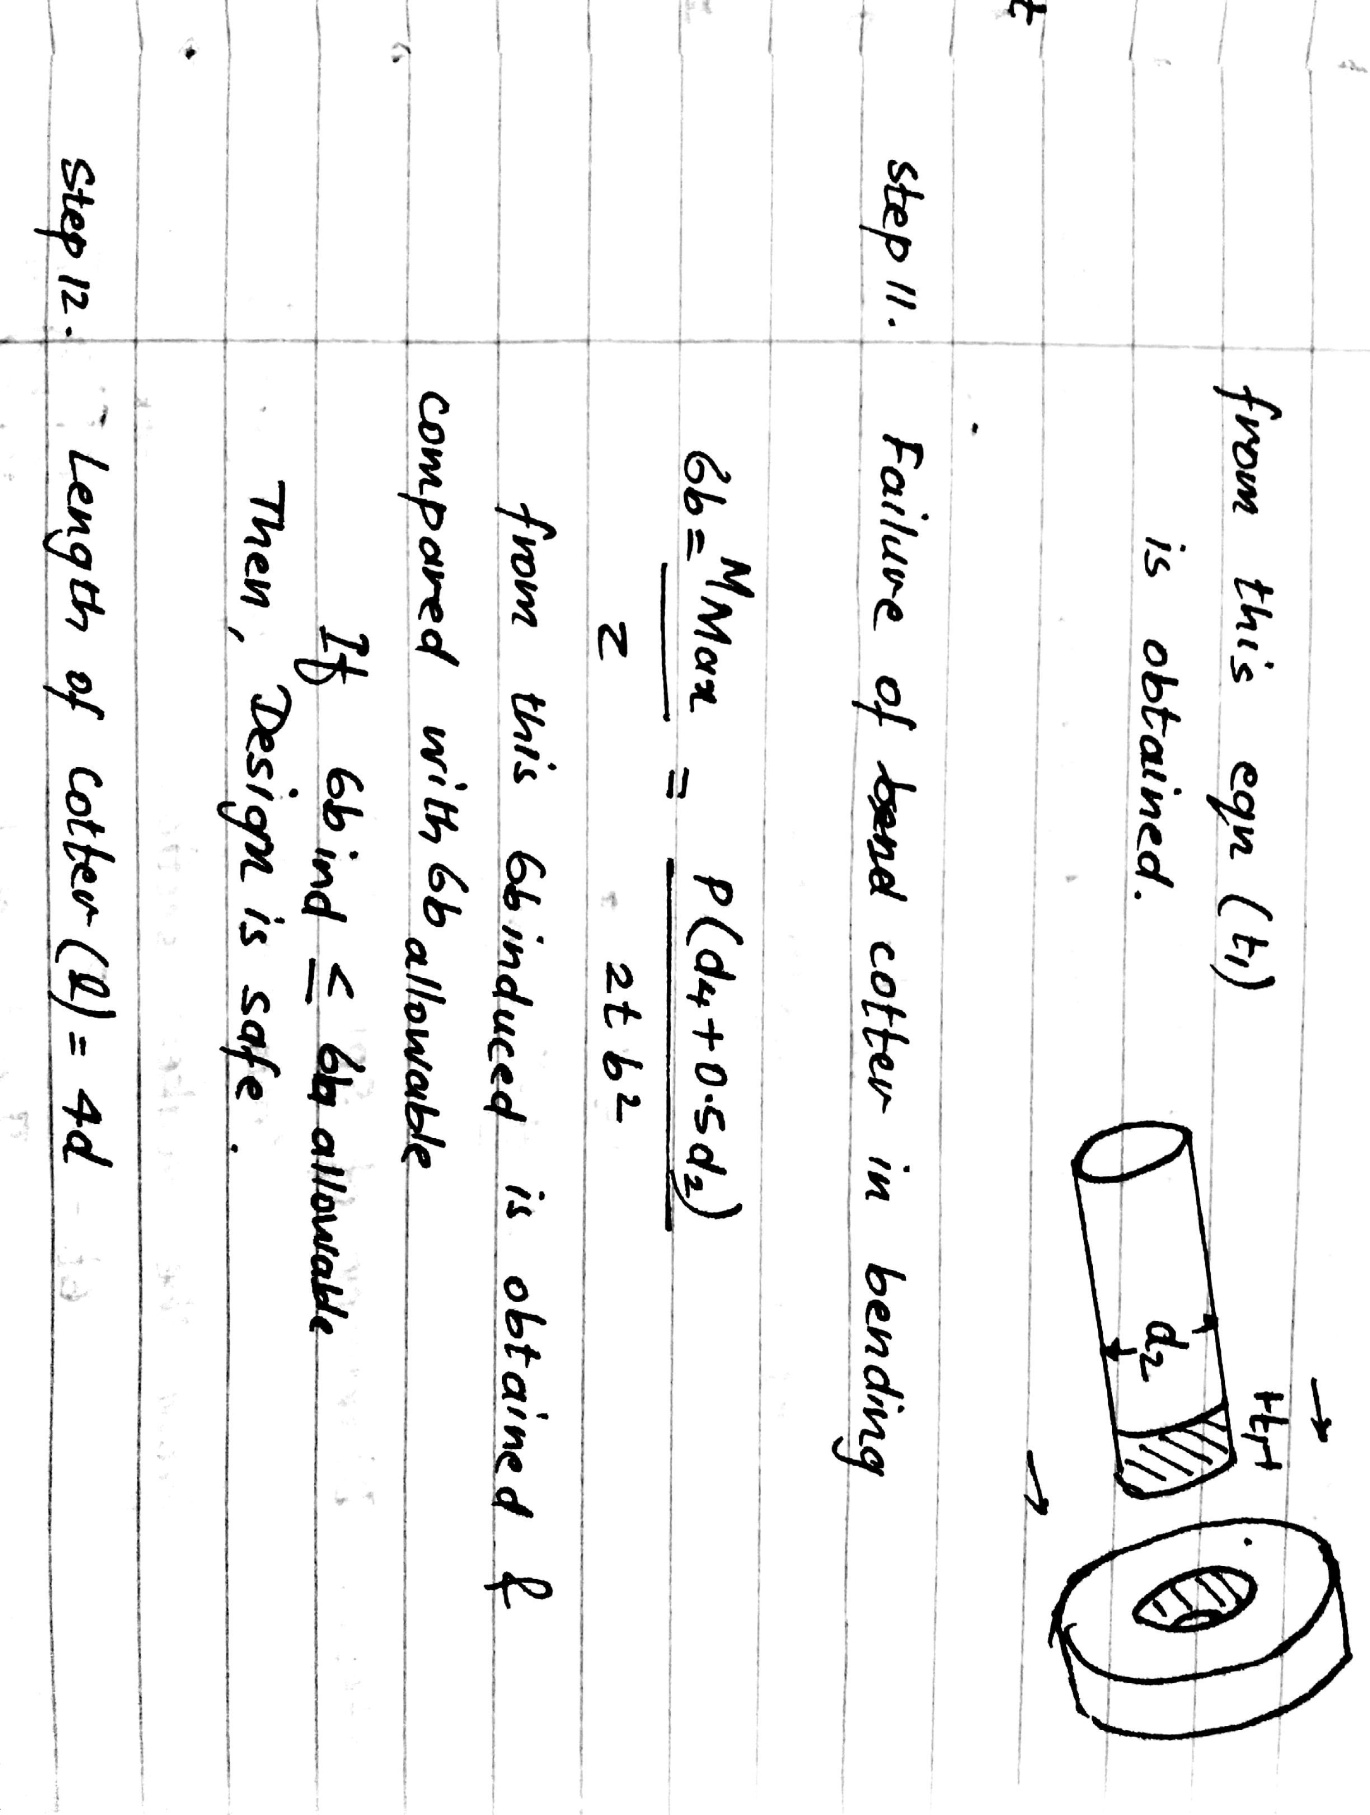 t
from this eqn (t1)
is obtained.
t1
d2
Step 11. Failure of cotter in bending
6b = MMax / Z = P(d4+0.5d2) / 2tb²
from this 6b induced is obtained &
compared with 6b allowable
If 6b ind ≤ 6b allowable
Then, Design is safe.
Step 12. Length of cotter (l) = 4d